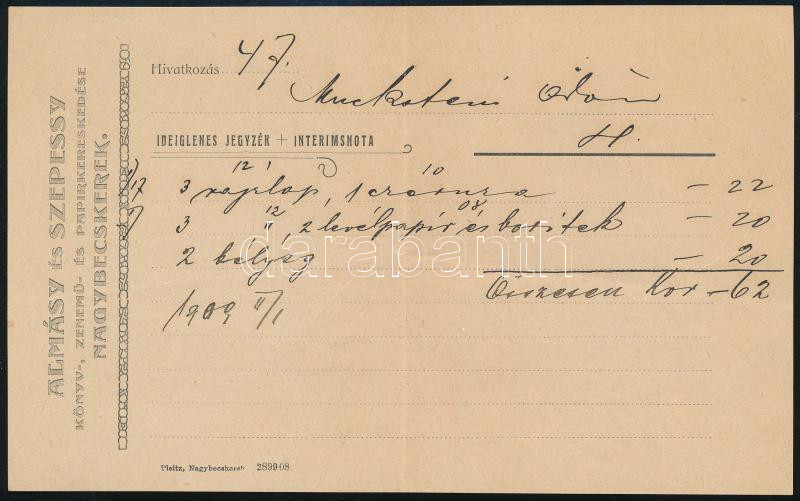 ALMÁSY ÉS SZEPESSY
KÖNYV-, ZENEMŰ- ÉS PAPIRKERESKEDÉSE
NAGYBECSKEREK.
Hivatkozás 47.
Ödön
IDEIGLENES JEGYZÉK + INTERIMSNOTA
H.
12 10
3 rajzlap, 1 – 22
12 08
3 ", 2 levélpapír és boriték – 20
2 bélyeg – 20
Összesen Kor – 62
1909 II/1
darabanth
Pleitz, Nagybecskerek 289908